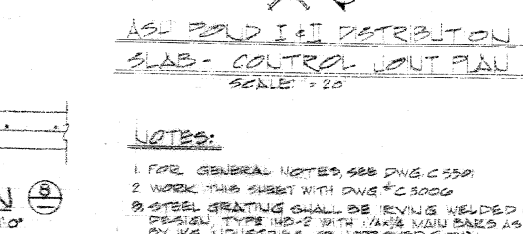 ASH POND I & II DISTRBTION
SLAB - CONTROL JOINT PLAN
SCALE: = 20'
NOTES:
1. FOR GENERAL NOTES, SEE DWG. C 3301
2 WORK THIS SHEET WITH DWG # C 3006
3. STEEL GRATING SHALL BE IRVING WELDED
DESIGN, TYPE MAIN BARS AS
8